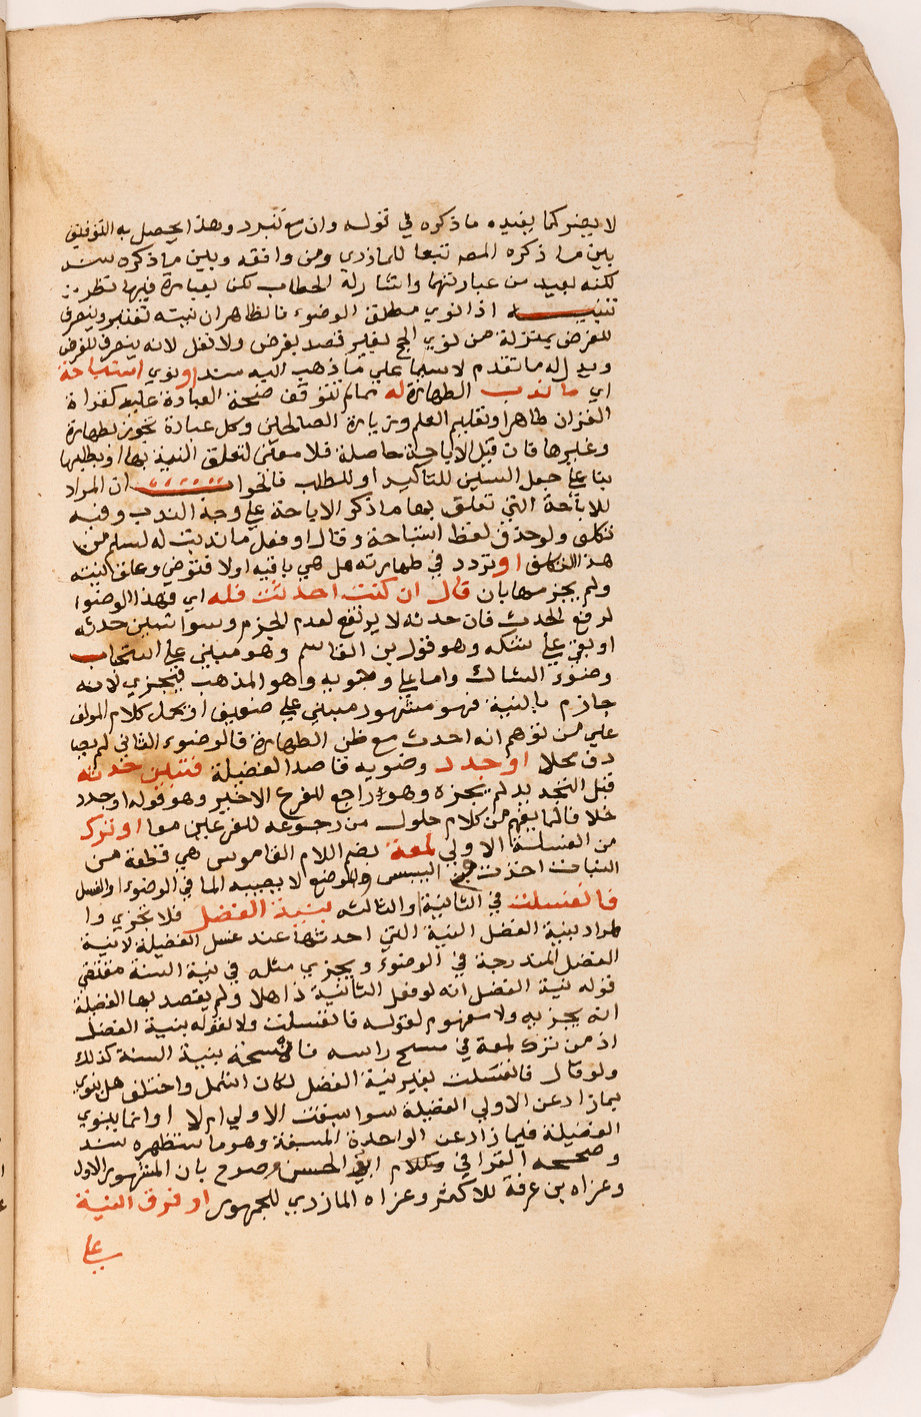 لا يضر كما يفيده ما ذكره في قوله وان مع تبرد وهذا يحصل به التوفيق
بين ما ذكره المصـ تبعا للمازري ومن وافقه وبين ما ذكره سند
لكنه بعيد من عبارتهما واشار له الحطاب لكن بعبارة فيها نظر
تنبيه اذا نوي مطلق الوضوء فالظاهر ان نيته تعتبر وينصرف
للفرض بمنزلة من نوي الحج بغير قصد بفرض ولا نفل لانه ينصرف للفرض
ويدل له ما تقدم لاسيما علي ما ذهب اليه سند او نوي استباحة
اي ما ندب الطهارة له مما لم تتوقف صحة العبادة عليه كقراة
القران ظاهرا وتعليم العلم وزيارة الصالحين وكل عبادة تجوز بطهارة
وغيرها فان قيل الاباحة حاصلة فلا معني لتعلق النية بها او بطلبها
بنا علي جعل السين للتاكيد او للطلب فالجواب ان المراد
للاباحة التي تعلق بها ما ذكر الاباحة علي وجه الندب وفيه
تكلف ولو حذف لفظ استباحة وقال او فعل ما ندبت له لسلم من
هذا التكلف او تردد في طهارته هل هي باقية او لا فتوضي وعلق نيته
ولم يجزم بها بان قال ان كنت احدثت فله اي فهذا الوضوا
لرفع الحدث فان حدثه لا يرتفع لعدم الجزم وسوا تبين حدثه
او بقي علي شكه وهو قول بن القاسم وهو مبني علي استحباب
وضوء الشاك واما علي وجوبه وهو المذهب فيجزي لانه
جازم بالنية فهو مشهور مبني علي ضعيف او يحمل كلام المولف
علي من توهم انه احدث مع ظن الطهارة فالوضوء الثاني لم يصا
دف محلا او جدد وضويه قاصدا الفضيلة فتبين حدثه
قبل التجديد لم يجزه وهو راجع للفرع الاخير وهو قوله او جدد
خلافا لما يفهم من كلام حلولو من رجوعه للفرعين معا او ترك
من الغسلة الاولي لمعة بضم اللام القاموس هي قطعة من
النبات اخذت في اليبس والموضع لا يصيبه الما في الوضوء او الغسل
فانغسلت في الثانية او الثالثه بنية الفضل فلا تجزي وا
لمراد بنية الفضل النية التي احدثها عند غسل الفضيلة لا نية
الفضل المندرجة في الوضوء ويجزي مثله في نية السنة مقتضي
قوله نية الفضل انه لو فعل الثانية ذاهلا ولم يقصد بها الفضيلة
انه يجزيه ولا مفهوم لقوله فانغسلت ولا لقوله بنية الفضل
اذ من ترك لمعة في مسح راسه فانمسحت بنية السنة كذلك
ولو قال فانغسلت بغير نية الفضل لكان اشمل واختلف هل ينوي
بما زاد عن الاولي الفضيلة سوا اسبغت الاولي ام لا او انما ينوي
الفضيلة فيما زاد عن الواحدة المسبغة وهو ما استظهره سند
وصححه القرافي وكلام ابي الحسن مصرح بان المشهور الاول
وعزاه بن عرفة للاكثر وعزاه المازري للجمهور او فرق النية
علي